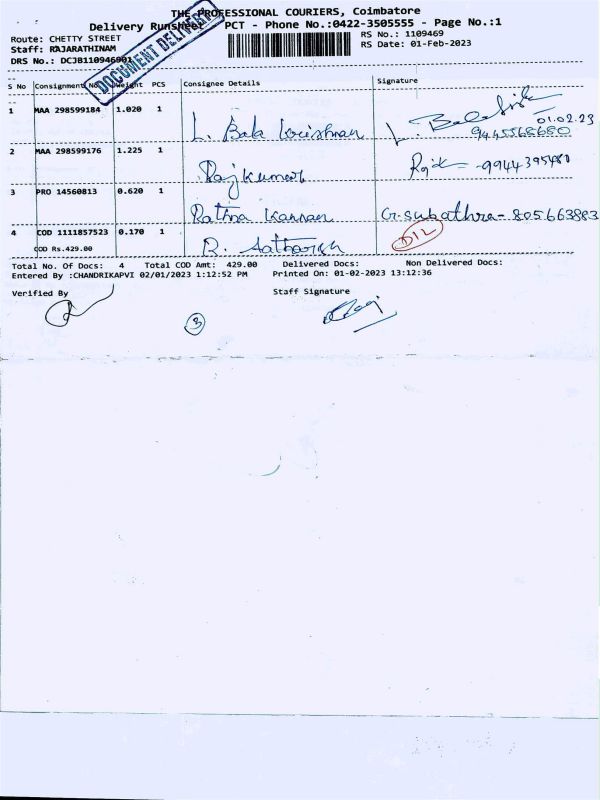 THE PROFESSIONAL COURIERS, Coimbatore
Delivery Runsheet PCT - Phone No.:0422-3505555 - Page No.:1
Route: CHETTY STREET
RS No.: 1109469
Staff: RAJARATHINAM
RS Date: 01-Feb-2023
DRS No.: DCJB110946901
DOCUMENT DELIVERY
S No Consignment No Weight PCS Consignee Details Signature
1 MAA 298599184 1.020 1 L. Bala
01.02.23
9445568680
2 MAA 298599176 1.225 1 Rajkumar -9944395480
3 PRO 14560813 0.620 1 Rathna Kannan G. Subathra- 805663883
4 COD 1111857523 0.170 1 R. D12
COD Rs.429.00
Total No. Of Docs: 4 Total COD Amt: 429.00 Delivered Docs: Non Delivered Docs:
Entered By :CHANDRIKAPVI 02/01/2023 1:12:52 PM Printed On: 01-02-2023 13:12:36
Verified By Staff Signature
3